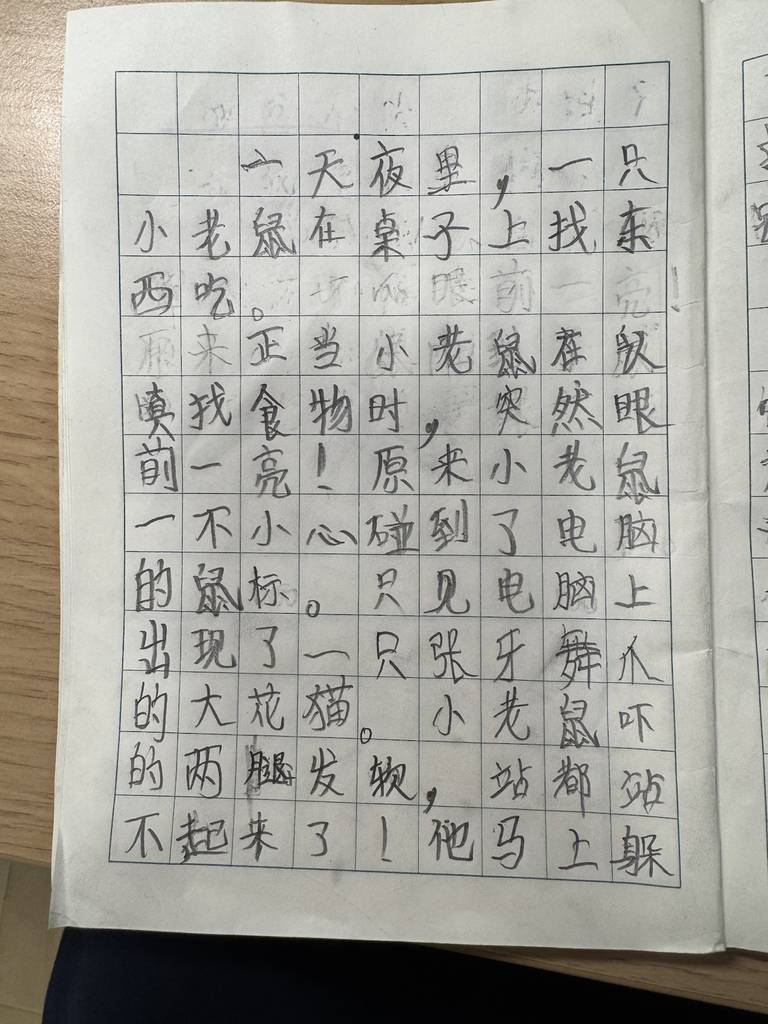 一天夜里，一只
小老鼠在桌子上找东
西吃。
正当小老鼠在认
真找食物时，突然眼
前一亮！原来小老鼠
一不小心碰到了电脑
的鼠标。只见电脑上
出现了一只张牙舞爪
的大花猫。小老鼠吓
的两腿发软，站都站
不起来了！他马上躲